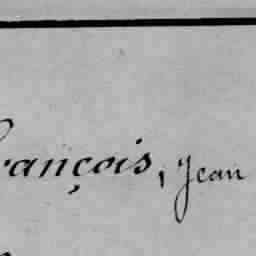 rançois, Jean